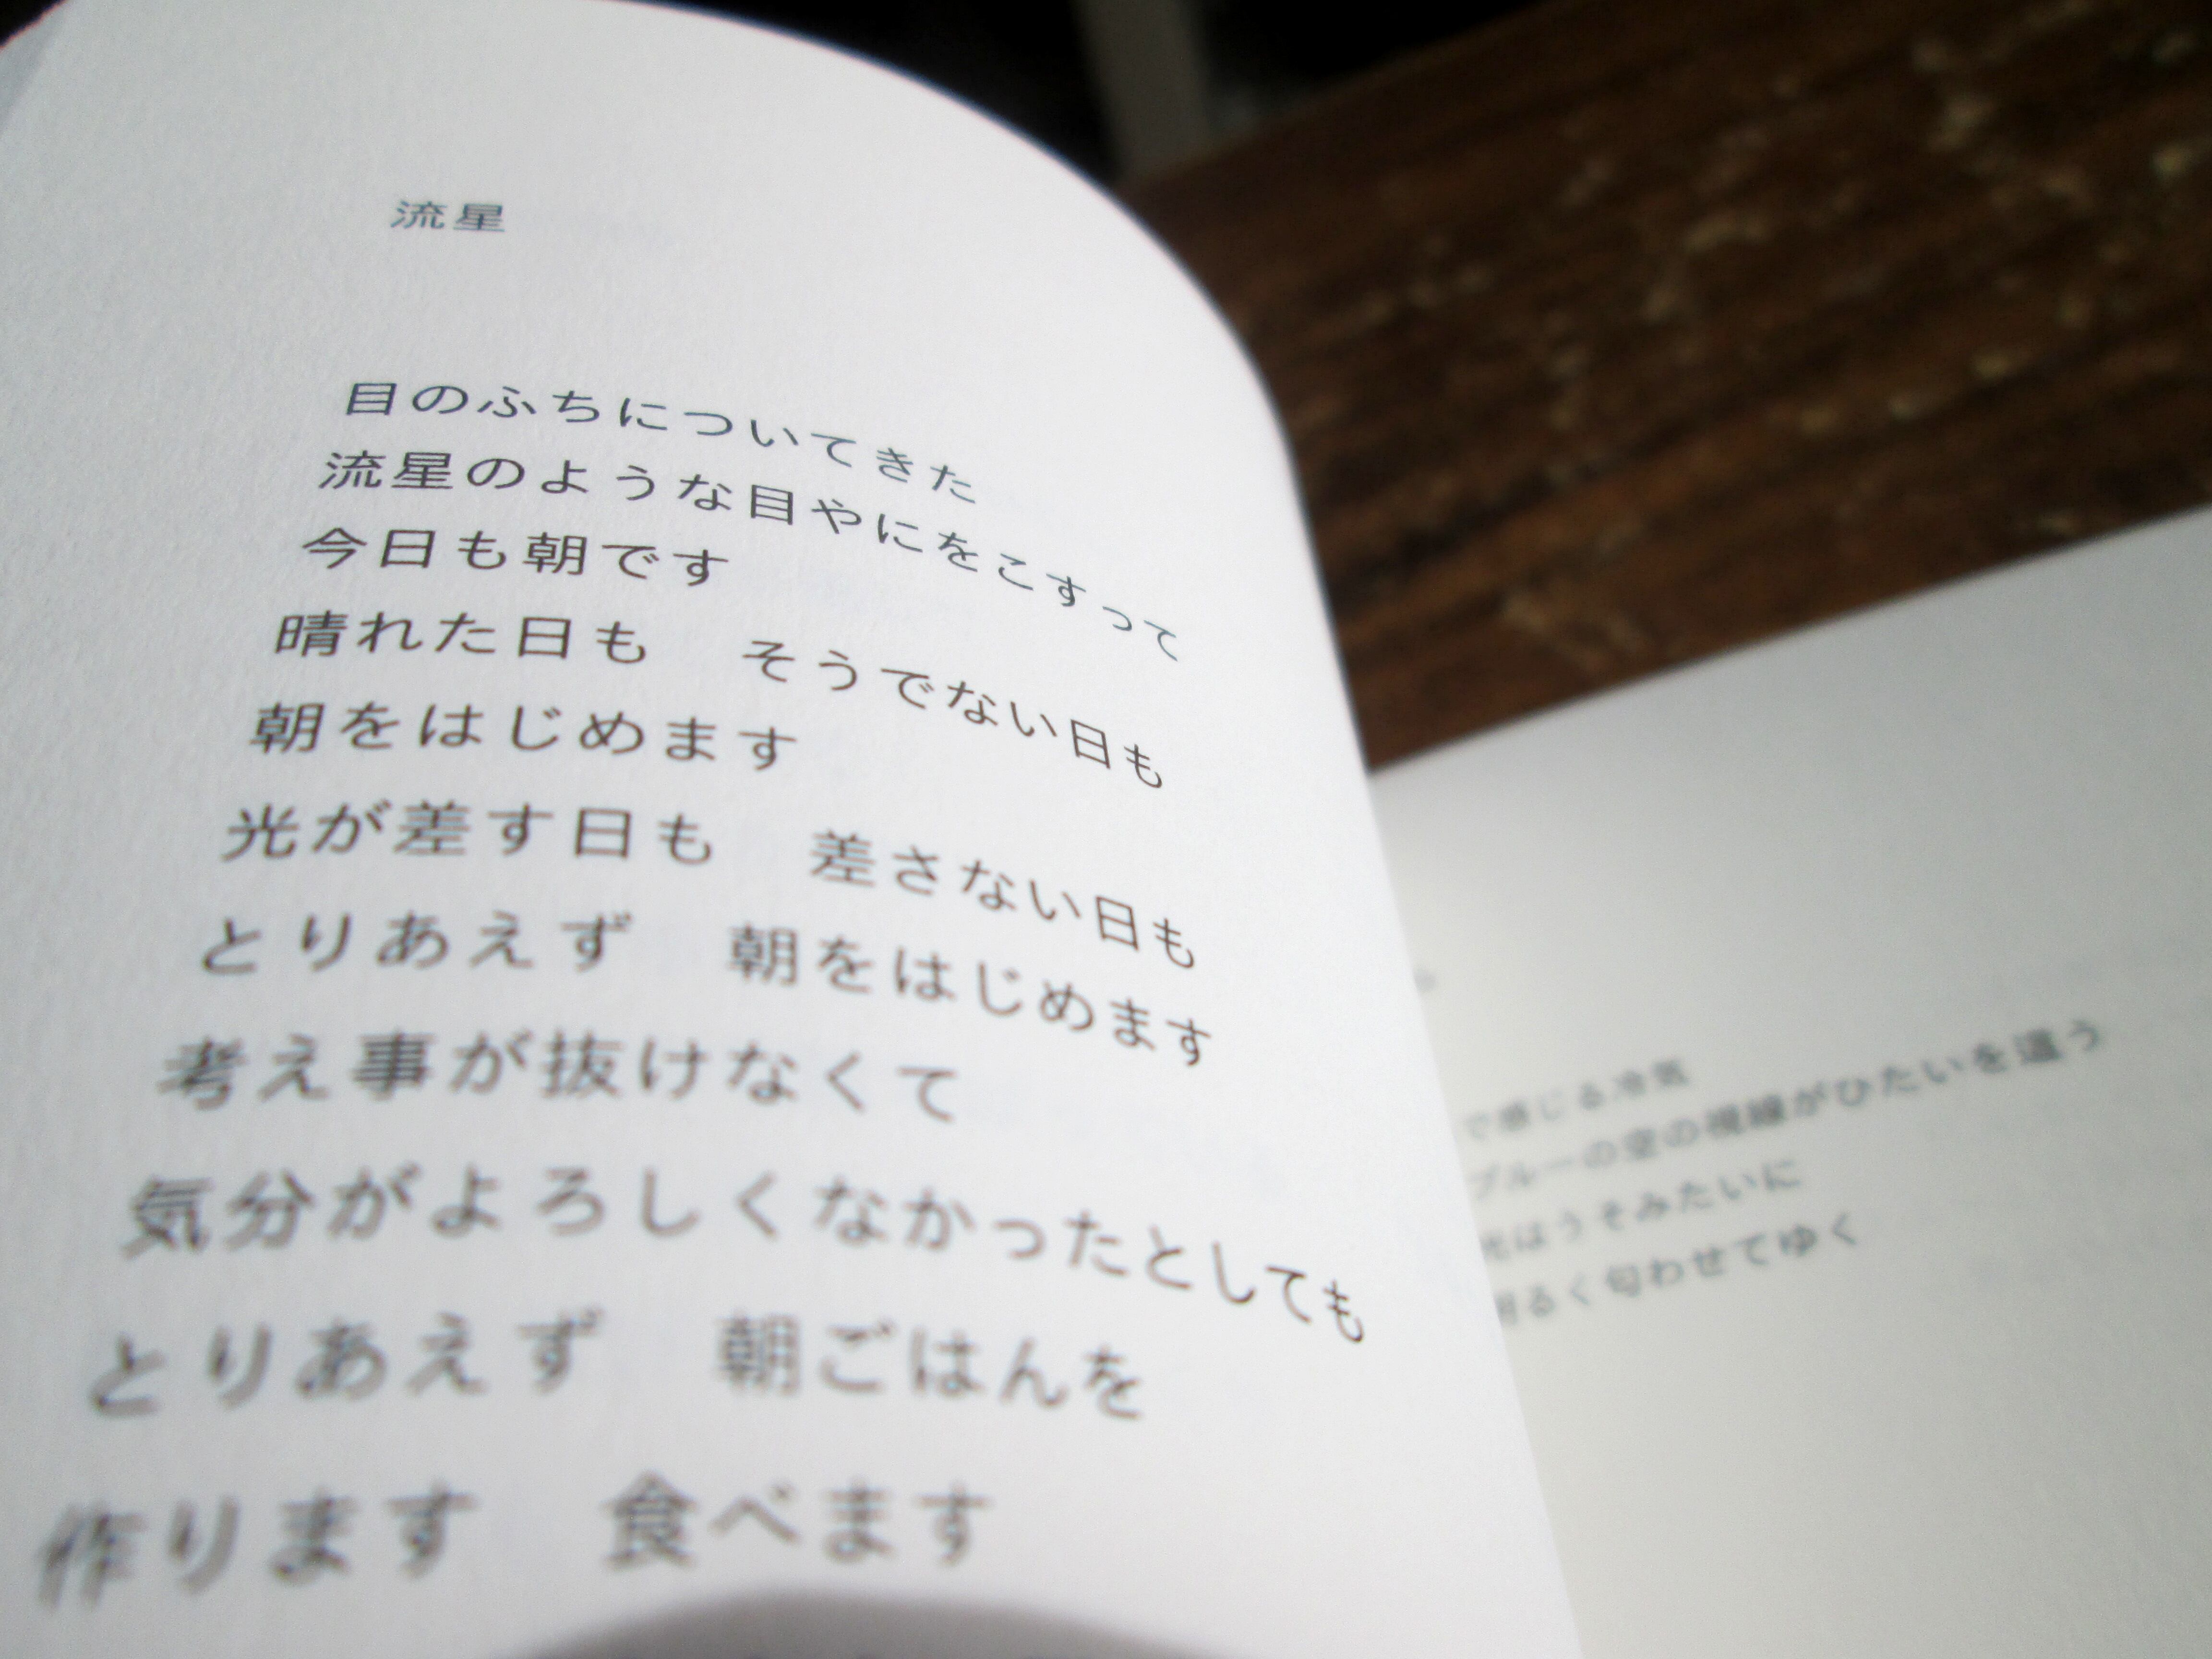 流星
目のふちについてきた
流星のような目やにをこすって
今日も朝です
晴れた日も　そうでない日も
朝をはじめます
光が差す日も　差さない日も
とりあえず　朝をはじめます
考え事が抜けなくて
気分がよろしくなかったとしても
とりあえず　朝ごはんを
作ります　食べます
で感じる冷気
ブルーの空の視線がひたいを這う
光はうそみたいに
明るく匂わせてゆく